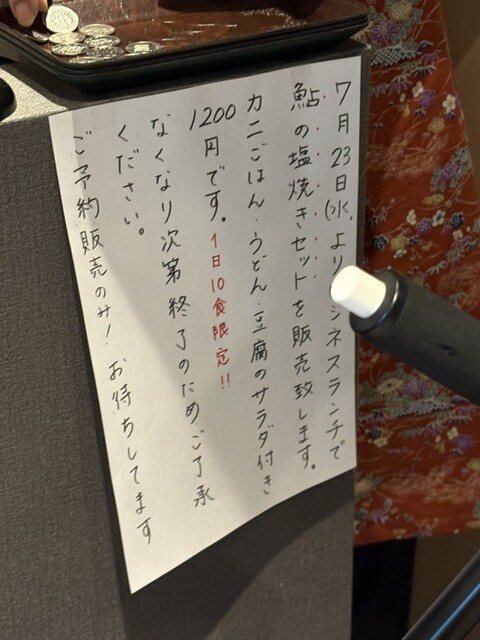 7月23日(水)より ジネスランチで
鮎の塩焼きセットを販売致します。
カニごはん・うどん・豆腐のサラダ付き
1200円です。1日10食限定!!
なくなり次第終了のためご了承
ください。
ご予約販売のみ! お待ちしてます